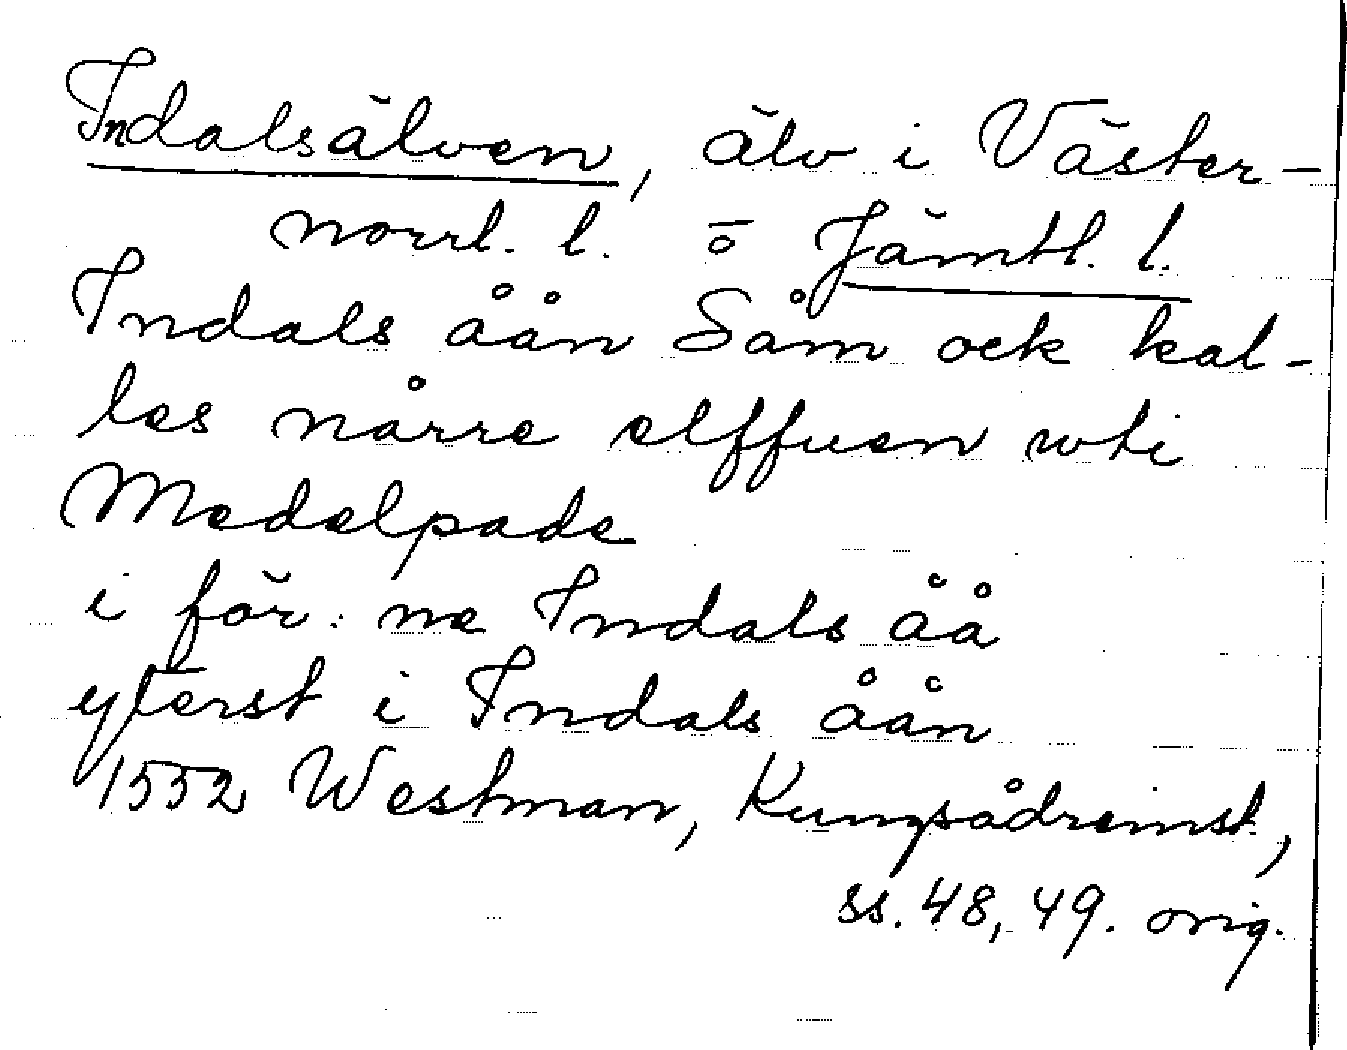 Indalsälven, älv i Väster-
norrl. l. o Jämtl. l.
Indals åån Såm ock kal-
les nårre elffuen wti
Medelpade
i för: ne Indals åå
ytterst i Indals åån
1552 Westman, Kungsådreinst,
ss. 48, 49. orig.